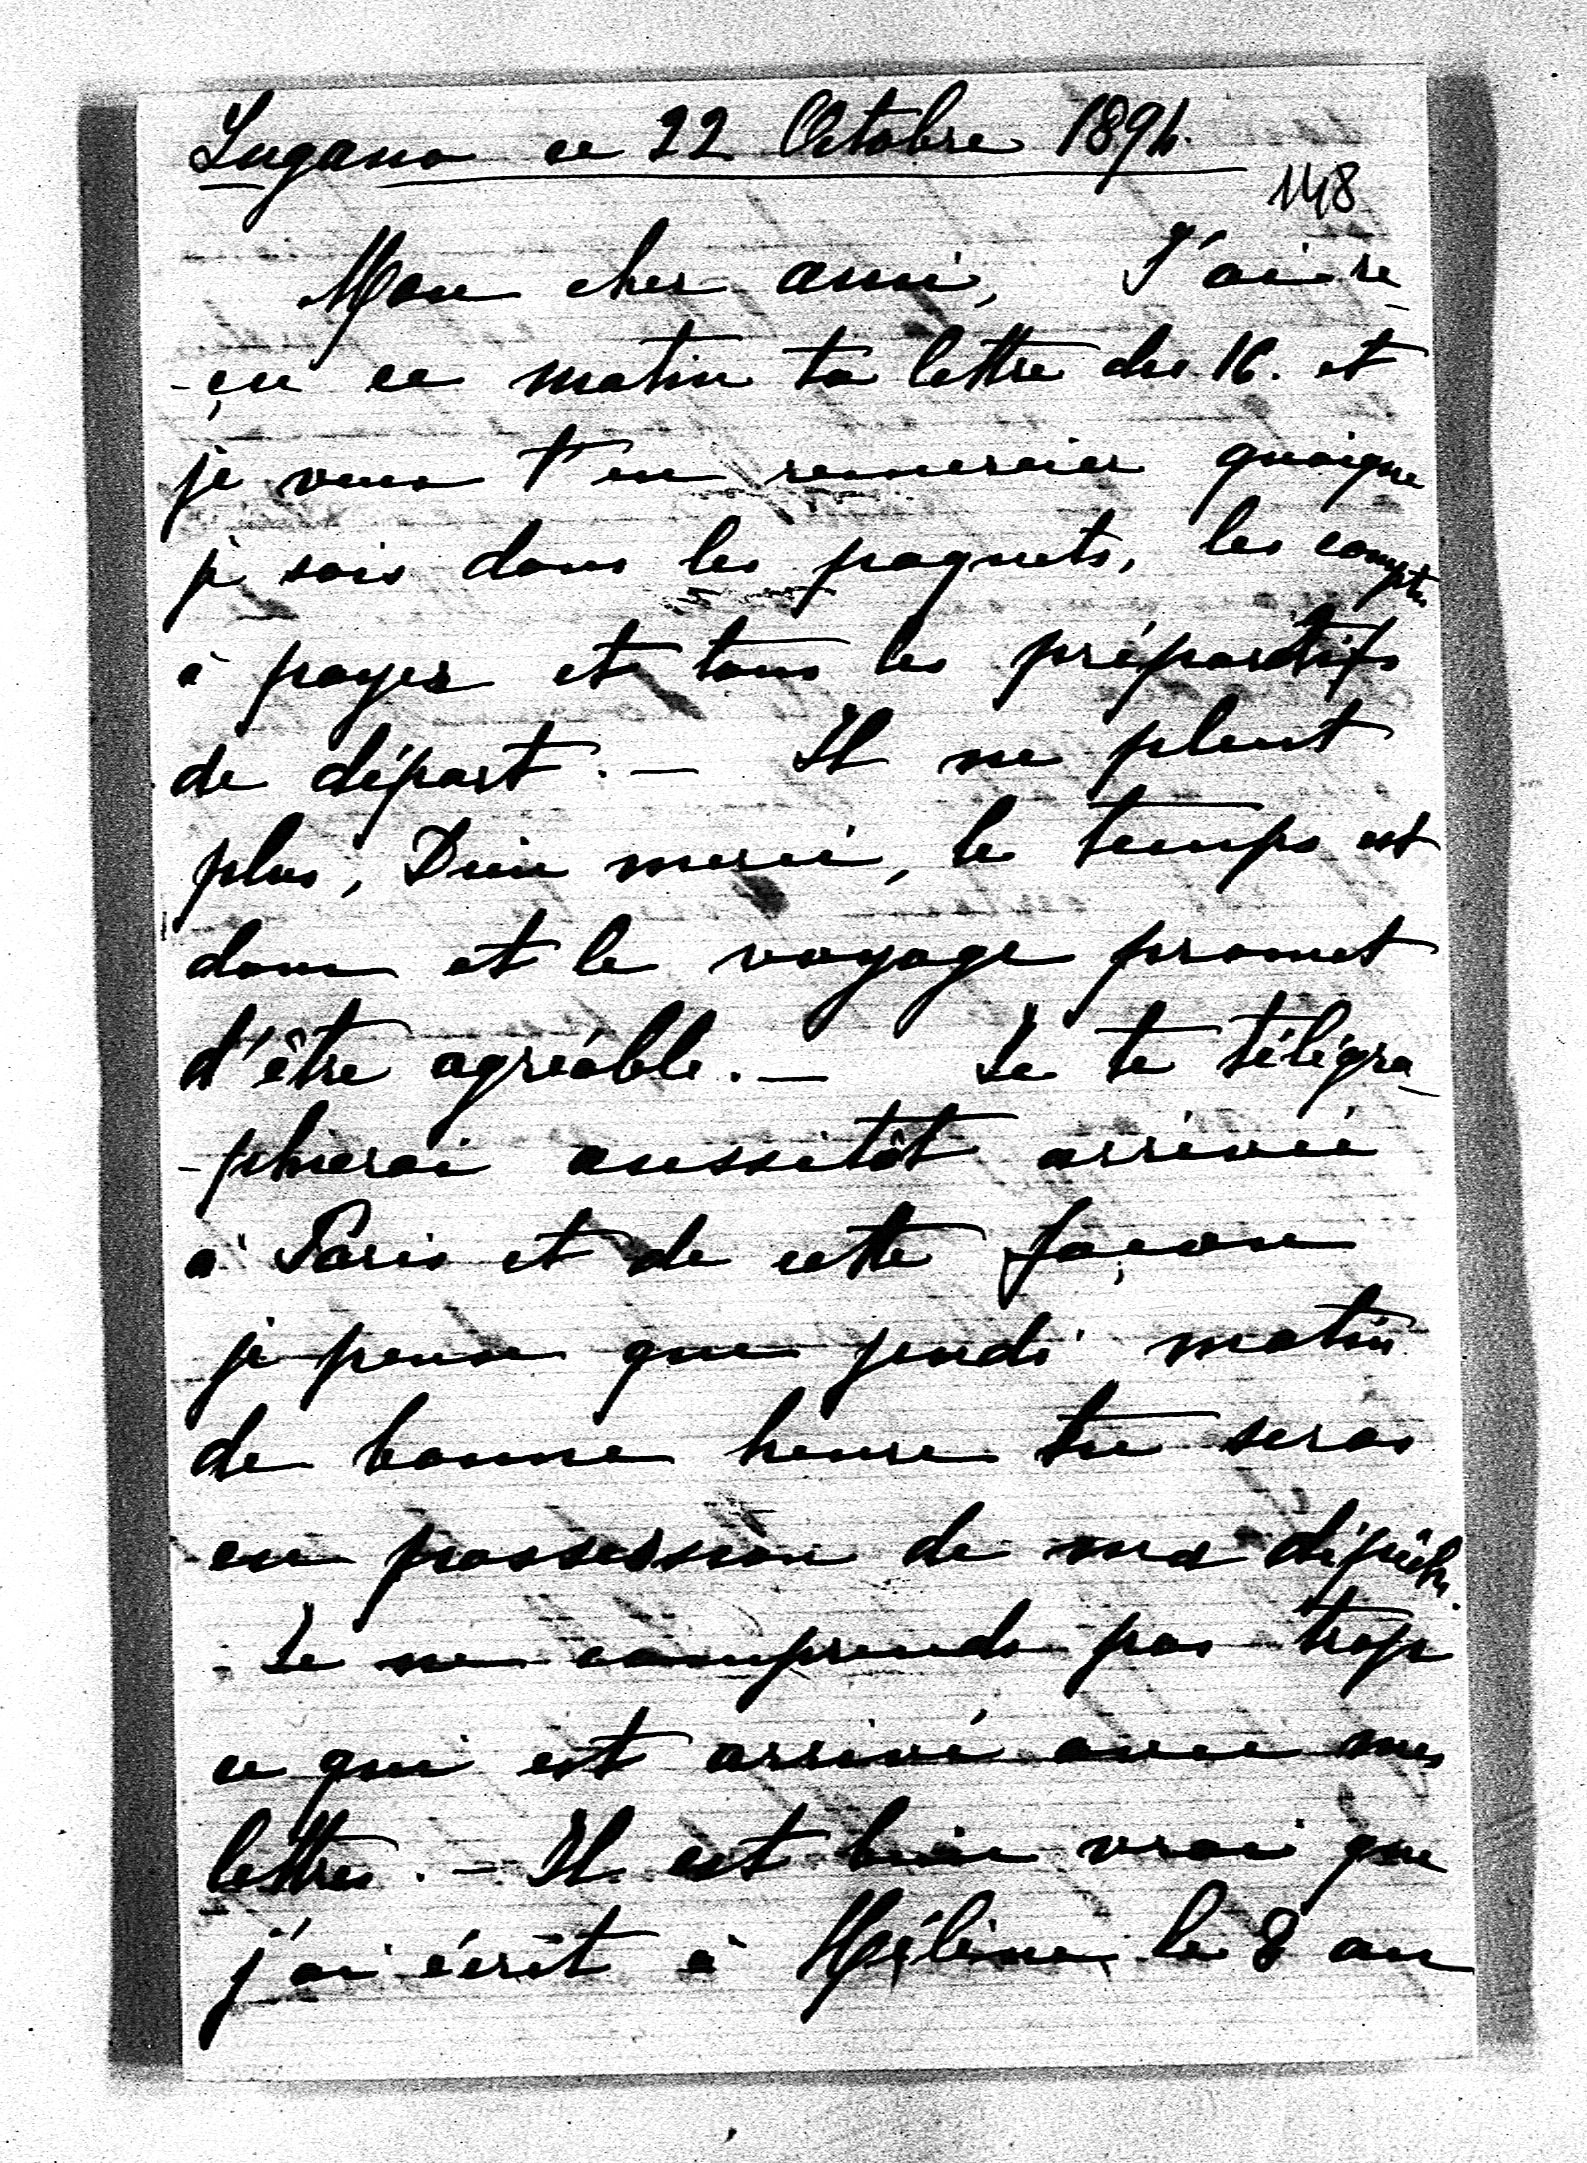 Lugano ce 22 Octobre 1894.
148
Mon cher ami, J'ai re-
-çu ce matin ta lettre du 16. et
je veux t'en remercier quoique
je sois dans les paquets, les comptes
à payer et tous les préparatifs
de départ. — Il ne pleut
plus, Dieu merci, le temps est
doux et le voyage promet
d'être agréable. — Je te télégra-
-phierai aussitôt arrivée
à Paris et de cette façon
je pense que jeudi matin
de bonne heure tu seras
en possession de ma dépêche.
- Je ne comprends pas trop
ce qui est arrivé avec mes
lettres. — Il est bien vrai que
j'ai écrit à Hélène le 8 au